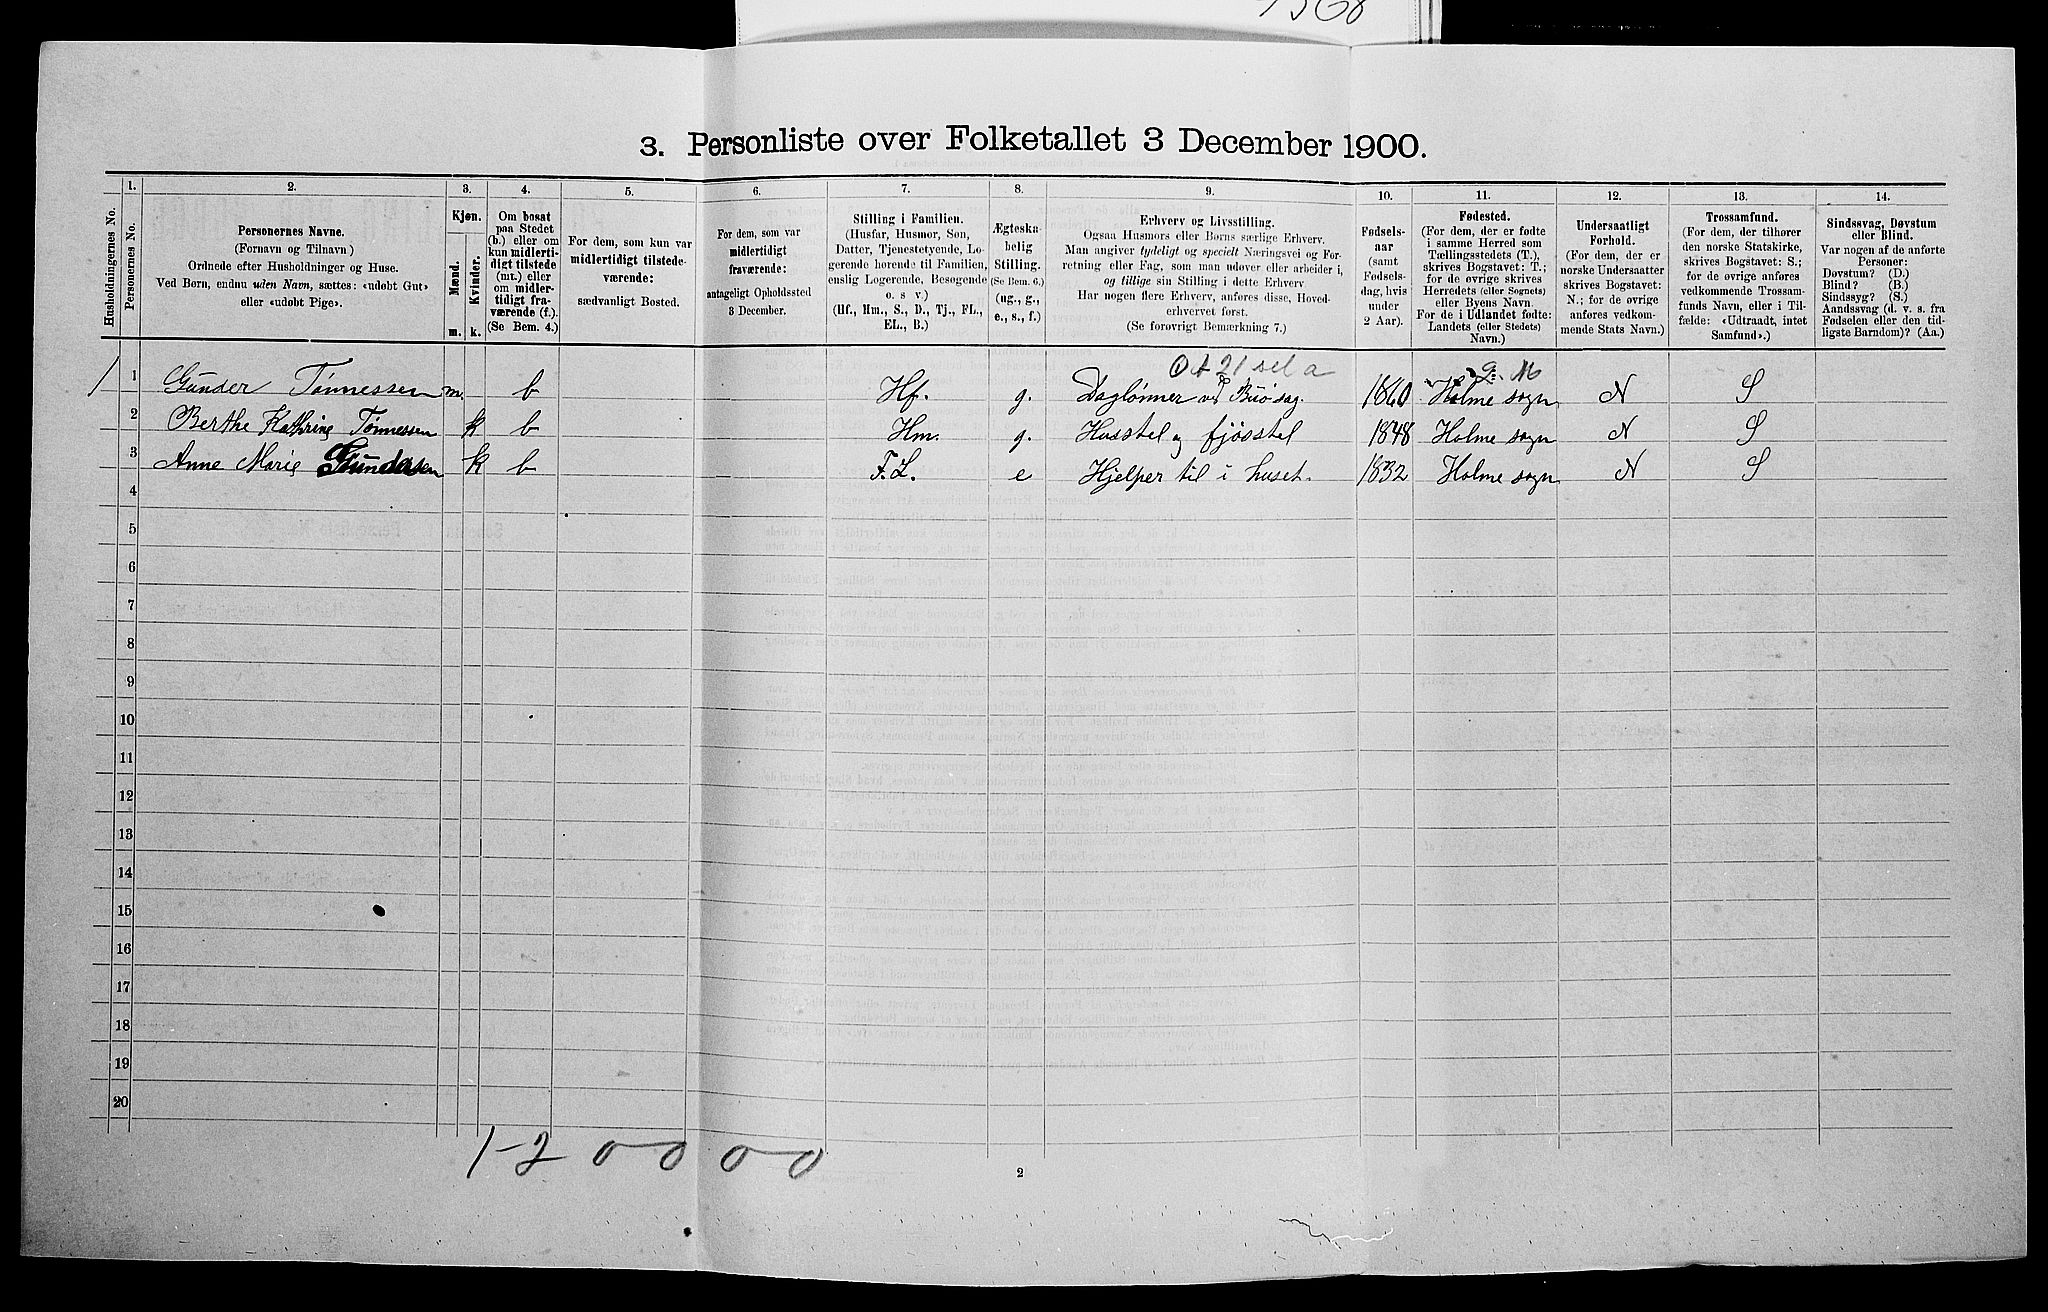 3. Personliste over Folketallet 3 December 1900.
Husholdningernes No.
1.
Personernes No.
2.
Personernes Navne.
(Fornavn og Tilnavn)
Ordnede efter Husholdninger og Huse.
Ved Børn, endnu uden Navn, sættes: «udøbt Gut»
eller «udøbt Pige».
3.
Kjøn.
Mænd.
Kvinder.
m.
k.
4.
Om bosat
paa Stedet
(b.) eller om
kun midlerti-
digt tilstede
(mt.) eller
om midler-
tidigt fra-
værende (f.).
(Se Bem. 4.)
5.
For dem, som kun var
midlertidigt tilstede-
værende:
sædvanligt Bosted.
6.
For dem, som var
midlertidigt
fraværende:
antageligt Opholdssted
3 December.
7.
Stilling i Familien.
(Husfar, Husmor, Søn,
Datter, Tjenestetyende, Lo-
gerende hørende til Familien,
enslig Logerende, Besøgende
o. s v.)
(Hf., Hm., S., D., Tj., FL.,
EL., B.)
8.
Ægteska-
belig
Stilling.
(Se Bem. 6.)
(ug., g.,
e., s., f.)
9.
Erhverv og Livsstilling.
Ogsaa Husmors eller Børns særlige Erhverv.
Man angiver tydeligt og specielt Næringsvei og For-
retning eller Fag, som man udøver eller arbeider i,
og tillige sin Stilling i dette Erhverv
Har nogen flere Erhverv, anføres disse, Hoved-
erhvervet først.
(Se forøvrigt Bemærkning 7.)
10.
Fødsels-
aar
(samt
Fødsels-
dag, hvis
under
2 Aar).
11.
Fødested.
(For dem, der er fødte
i samme Herred som
Tællingsstedets (T.),
skrives Bogstavet: T.;
for de øvrige skrives
Herredets (eller Sognets)
eller Byens Navn.
For de i Udlandet fødte:
Landets (eller Stedets)
Navn.)
12.
Undersaatligt
Forhold.
(For dem, der er
norske Undersaatter
skrives Bogstavet:
N.; for de øvrige
anføres vedkom-
mende Stats Navn.)
13.
Trossamfund.
(For dem, der tilhører
den norske Statskirke,
skrives Bogstavet: S.;
for de øvrige anføres
vedkommende Trossam-
funds Navn, eller i Til-
fælde: «Udtraadt, intet
Samfund».)
14.
Sindssvag, Døvstum
eller Blind.
Var nogen af de anførte
Personer:
Døvstum? (D.)
Blind? (B.)
Sindssyg? (S.)
Aandssvag (d. v. s. fra
Fødselen eller den tid-
ligste Barndom)? (Aa.)
1 1 Gunder Tønnessen m. b Hf. g. Daglønner ved 1860 Holme sogn N S
2 Berthe Kathrine Tønnessen k b Hm. g. Husstel og fjøsstel 1848 Holme sogn N S
3 Anne Marie Gundersen k b F.L. e Hjelper til i huset. 1832 Holme sogn N S
4
5
6
7
8
9
10
11
12
13
14
15
16
17
18
19
20
1-2 0 0 0 0
2